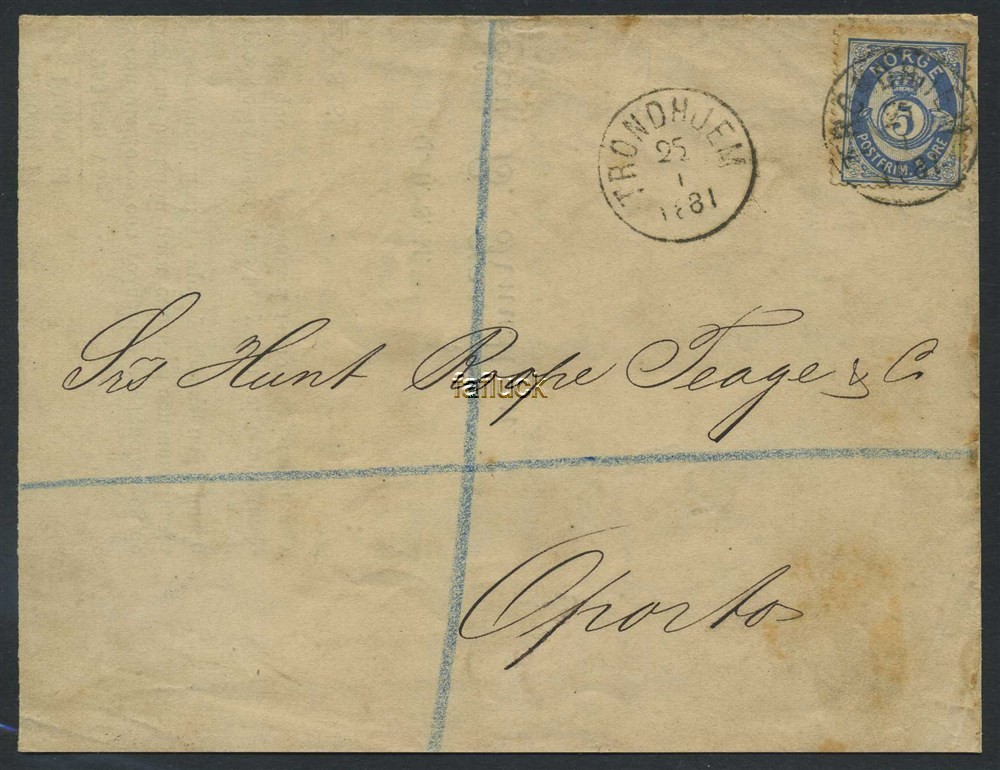 NORGE
5
POSTFRIM. 5 ØRE
TRONDHJEM
25
1
1881
Srs Hunt Roope Teage & Co
falluck
Oporto